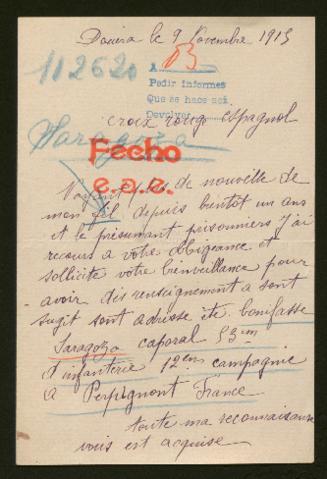 Douera le 9 Novembre 1915
112620
A 03
Pedir informes
Que se hace acá
Devolver
croix rouge espagnol
Saragoza
Fecho
Voyant pas de nouvelle de
mon fil depuis bientot un ans
et le présumant prisonniers J'ai
recours a votre obligeance et
sollicite votre bienveillance pour
avoir des renseignement a sont
sugit sont adresse éte bonifasse
Saragoza caporal 53em
d'infanterie 12em campagnie
a Perpignont France
toute ma reconnaissance
vous est acquise